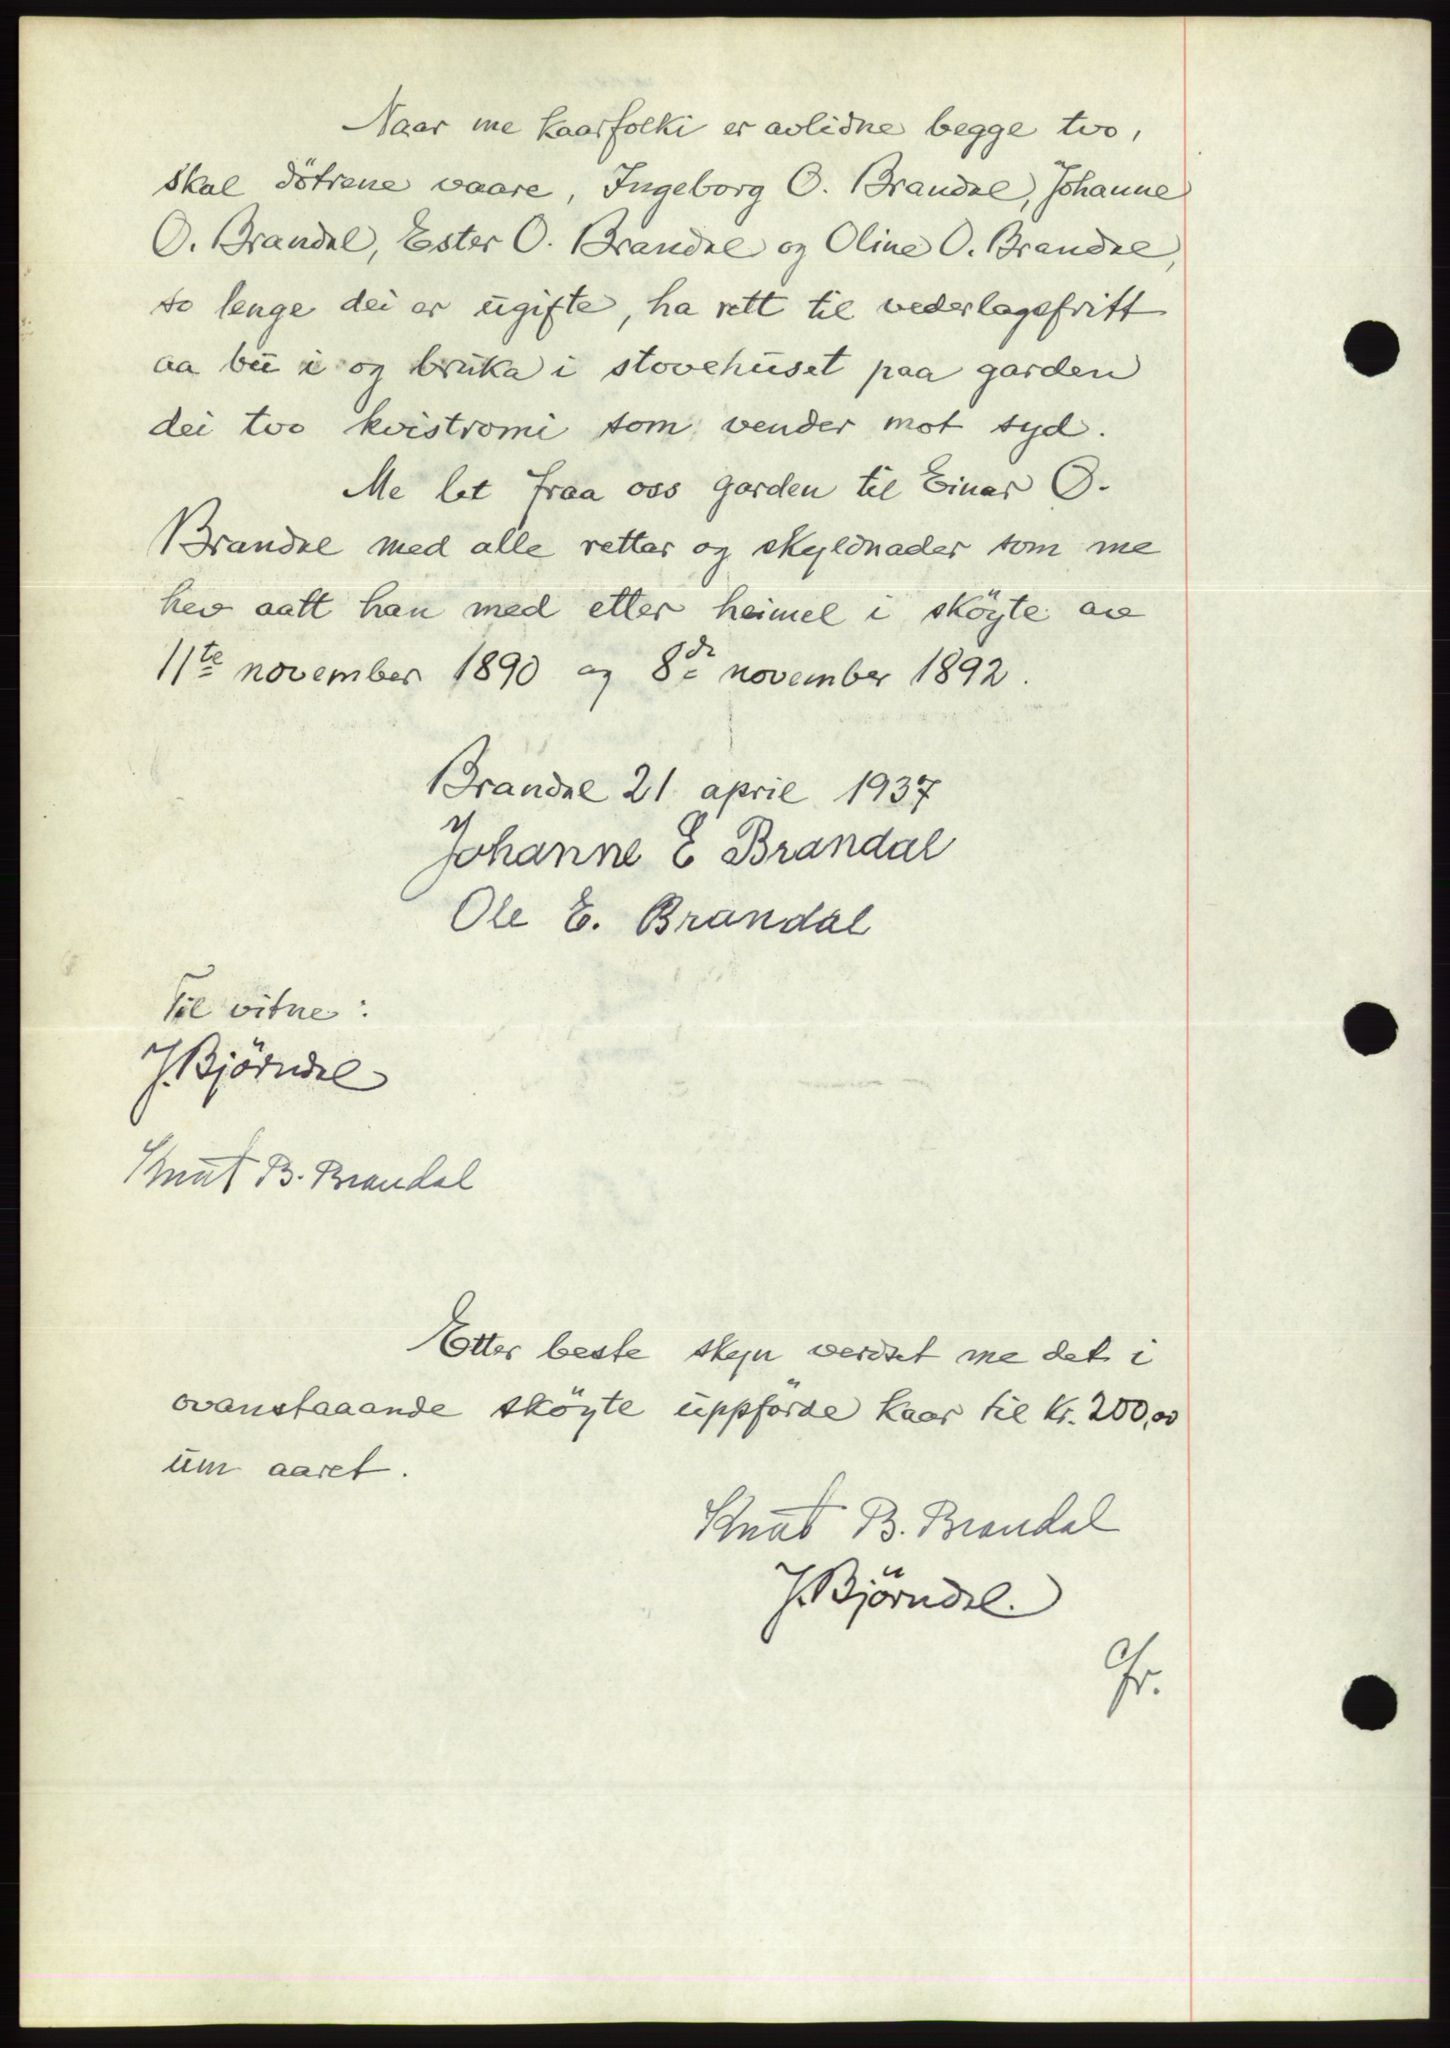 Naar me kaarfolki er avlidne begge tvo,
skal dötrene vaare, Ingeborg O. Brandal, Johanne
O. Brandal, Ester O. Brandal og Oline O. Brandal,
so lenge dei er ugifte, ha rett til vederlagsfritt
aa bu i og bruka i stovehuset paa garden
dei tvo kvistromi som vender mot syd.
Me let fraa oss garden til Einar O.
Brandal med alle rettar og skyldnader som me
hev aatt han med etter heimel i sköyte av
11te november 1890 og 8de november 1892.
Brandal 21 april 1937
Johanne E Brandal
Ole E. Brandal
Til vitne:
J. Björndal
Knut B. Brandal
Etter beste skyn verdset me det i
ovanstaaande sköyte uppförde kaar til kr. 200,00
um aaret.
Knut B. Brandal
J. Björndal.